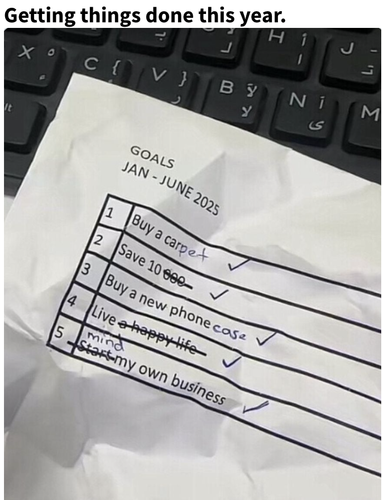 Getting things done this year.
X
C {
V }
B
H
J
N
M
GOALS
JAN - JUNE 2025
1 Buy a carpet ✓
2 Save 10 000 ✓
3 Buy a new phone case ✓
4 Live a happy life ✓
mind
5 Start my own business ✓